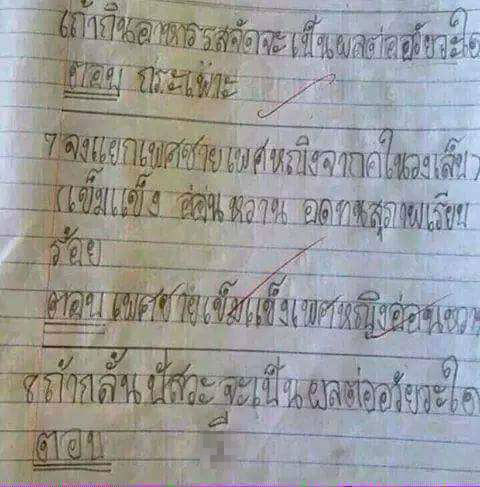 6ถ้ากินอาหารรสจัดจะเป็นผลต่ออวัยวะใด
ตอบ กระเพาะ
7 จงแยกเพศชายเพศหญิงจากคำในวงเล็บ
(เข้มแข็ง อ่อนหวาน อดทนสุภาพเรียบ
ร้อย
ตอบ เพศชายเข้มแข็งเพศหญิงอ่อนหวาน
8.ถ้ากลั้นปัสวะจะเป็นผลต่ออวัยวะใด
ตอบ